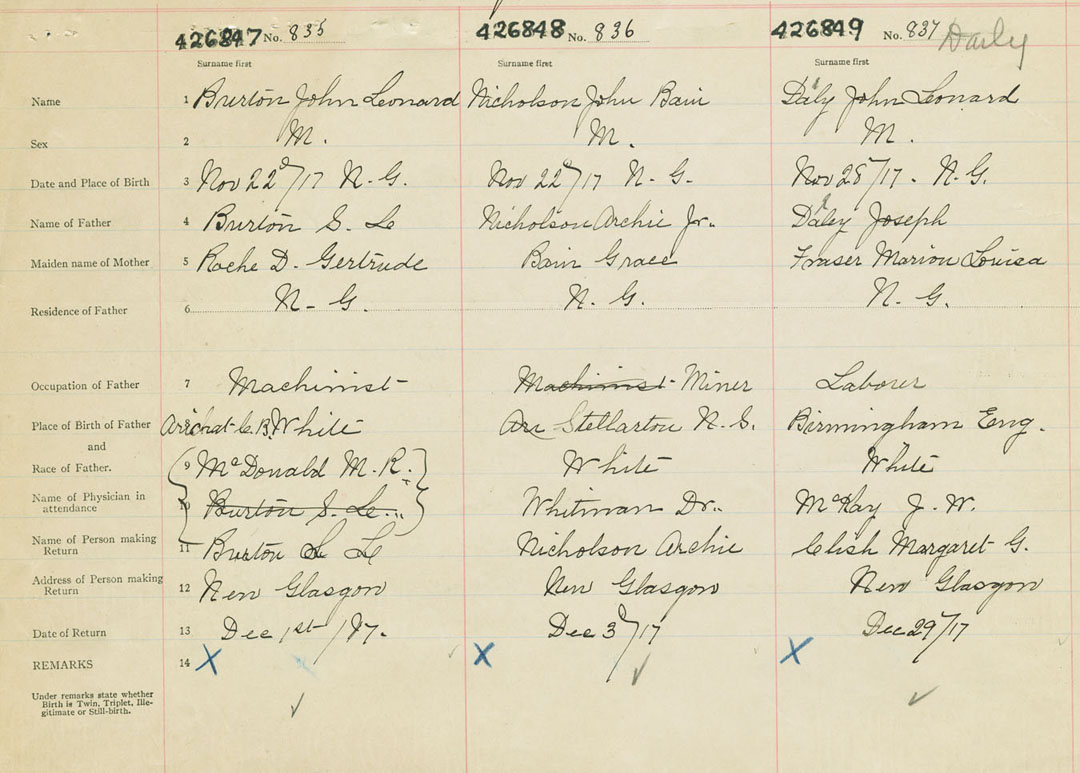 426847 No. 835 426848 No. 836 426849 No. 837 Daily
Surname first Surname first Surname first
Name 1 Burton John Leonard Nicholson John Bain Daly John Leonard
Sex 2 M. M. M.
Date and Place of Birth 3 Nov 22d/17 N-G. Nov 22d/17 N-G. Nov 28/17. N.G.
Name of Father 4 Burton S. Le Nicholson Archie Jr. Daley Joseph
Maiden name of Mother 5 Roche D. Gertrude Bain Grace Fraser Marion Louisa
Residence of Father 6 N-G. N.G. N.G.
Occupation of Father 7 Machinist Machinist Miner Laborer
Place of Birth of Father Arichat C.B. White Stellarton N.S. Birmingham Eng.
and
Race of Father. 9 McDonald M.R. White White
Name of Physician in attendance 10 Burton S. Le. Whitman Dr. McKay J.W.
Name of Person making Return 11 Burton S. Le Nicholson Archie Clish Margaret G.
Address of Person making Return 12 New Glasgow New Glasgow New Glasgow
Date of Return 13 Dec 1st/17. Dec 3d/17 Dec 29/17
REMARKS 14 X X X
Under remarks state whether
Birth is Twin, Triplet, Ille-
gitimate or Still-birth.